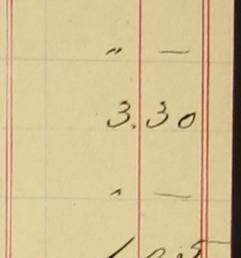 " —
3.30
" —